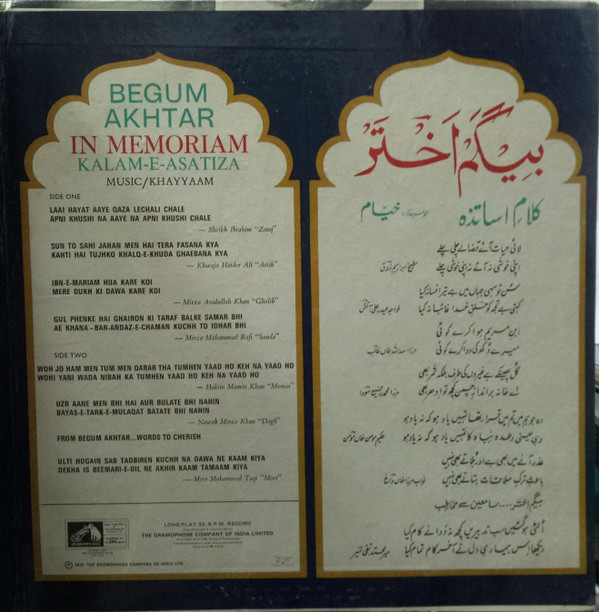 BEGUM
AKHTAR
IN MEMORIAM
KALAM-E-ASATIZA
MUSIC/KHAYYAAM
SIDE ONE
LAAI HAYAT AAYE QAZA LECHALI CHALE
APNI KHUSHI NA AAYE NA APNI KHUSHI CHALE
— Sheikh Ibrahim "Zauf"
SUN TO SAHI JAHAN MEN HAI TERA FASANA KYA
KAHTI HAI TUJHKO KHALQ-E-KHUDA GHAEBANA KYA
— Khwaja Haider Ali "Atish"
IBN-E-MARIAM HUA KARE KOI
MERE DUKH KI DAWA KARE KOI
— Mirza Asadullah Khan "Ghalib"
GUL PHENKE HAI GHAIRON KI TARAF BALKE SAMAR BHI
AE KHANA-BAR-ANDAZ-E-CHAMAN KUCHH TO IDHAR BHI
— Mirza Mohammad Rafi "Sauda"
SIDE TWO
WOH JO HAM MEN TUM MEN QARAR THA TUMHEN YAAD HO KEH NA YAAD HO
WOHI YANI WADA NIBAH KA TUMHEN YAAD HO KEH NA YAAD HO
— Hakim Momin Khan "Momin"
UZR AANE MEN BHI HAI AUR BULATE BHI NAHIN
BAYAS-E-TARK-E-MULAQAT BATATE BHI NAHIN
— Nawab Mirza Khan "Dagh"
FROM BEGUM AKHTAR...WORDS TO CHERISH
ULTI HOGAIN SAB TADBIREN KUCHH NA DAWA NE KAAM KIYA
DEKHA IS BEEMARI-E-DIL NE AKHIR KAAM TAMAAM KIYA
— Meer Mohammad Taqi "Meer"
LONG-PLAY 33⅓ R.P.M. RECORD
THE GRAMOPHONE COMPANY OF INDIA LIMITED
THE GRAMOPHONE COMPANY OF INDIA LTD.
بیگم اختر
کلامِ اساتذہ
خیام
لائی حیات آئے قضا لے چلی چلے
اپنی خوشی نہ آئے نہ اپنی خوشی چلے
شیخ ابراہیم ذوق
سُن تو سہی جہاں میں ہے تیرا فسانہ کیا
کہتی ہے تجھ کو خلقِ خدا غائبانہ کیا
خواجہ حیدر علی آتش
ابن مریم ہوا کرے کوئی
میرے دُکھ کی دوا کرے کوئی
مرزا اسداللہ خاں غالب
گُل پھینکے ہے غیروں کی طرف بلکہ ثمر بھی
اے خانہ بر اندازِ چمن کچھ تو ادھر بھی
مرزا محمد رفیع سودا
وہ جو ہم میں تم میں قرار تھا تمہیں یاد ہو کہ نہ یاد ہو
وہی یعنی وعدہ نباہ کا تمہیں یاد ہو کہ نہ یاد ہو
حکیم مومن خاں مومن
عذر آنے میں بھی ہے اور بلاتے بھی نہیں
باعثِ ترکِ ملاقات بتاتے بھی نہیں
نواب مرزا خاں داغ
بیگم اختر.... سامعین سے مخاطب
اُلٹی ہو گئیں سب تدبیریں کچھ نہ دوا نے کام کیا
دیکھا اِس بیماریِ دل نے آخر کام تمام کیا
میر محمد تقی میر